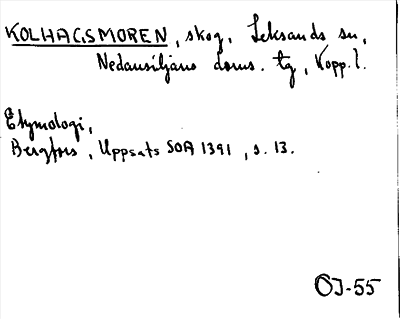 KOLHAGSMOREN, skog, Leksands sn,
Nedansiljans doms. tg, Kopp. l.
Etymologi,
Bergfors, Uppsats SOA 1391, s. 13.
OJ-55